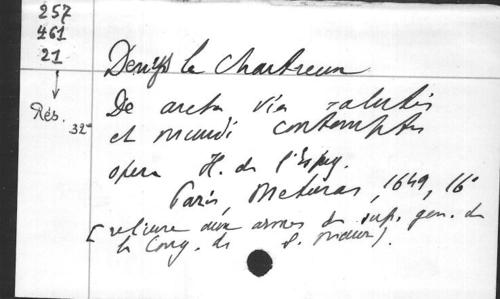 257
461
21
Denys le Chartreux
Rés.
De arcta via salutis
et mundi contemptu
opera H. de l'Espy.
Paris, Meturas, 1649, 16°
[reliure aux armes du sup. gen. de
la Cong. de S. Maur].